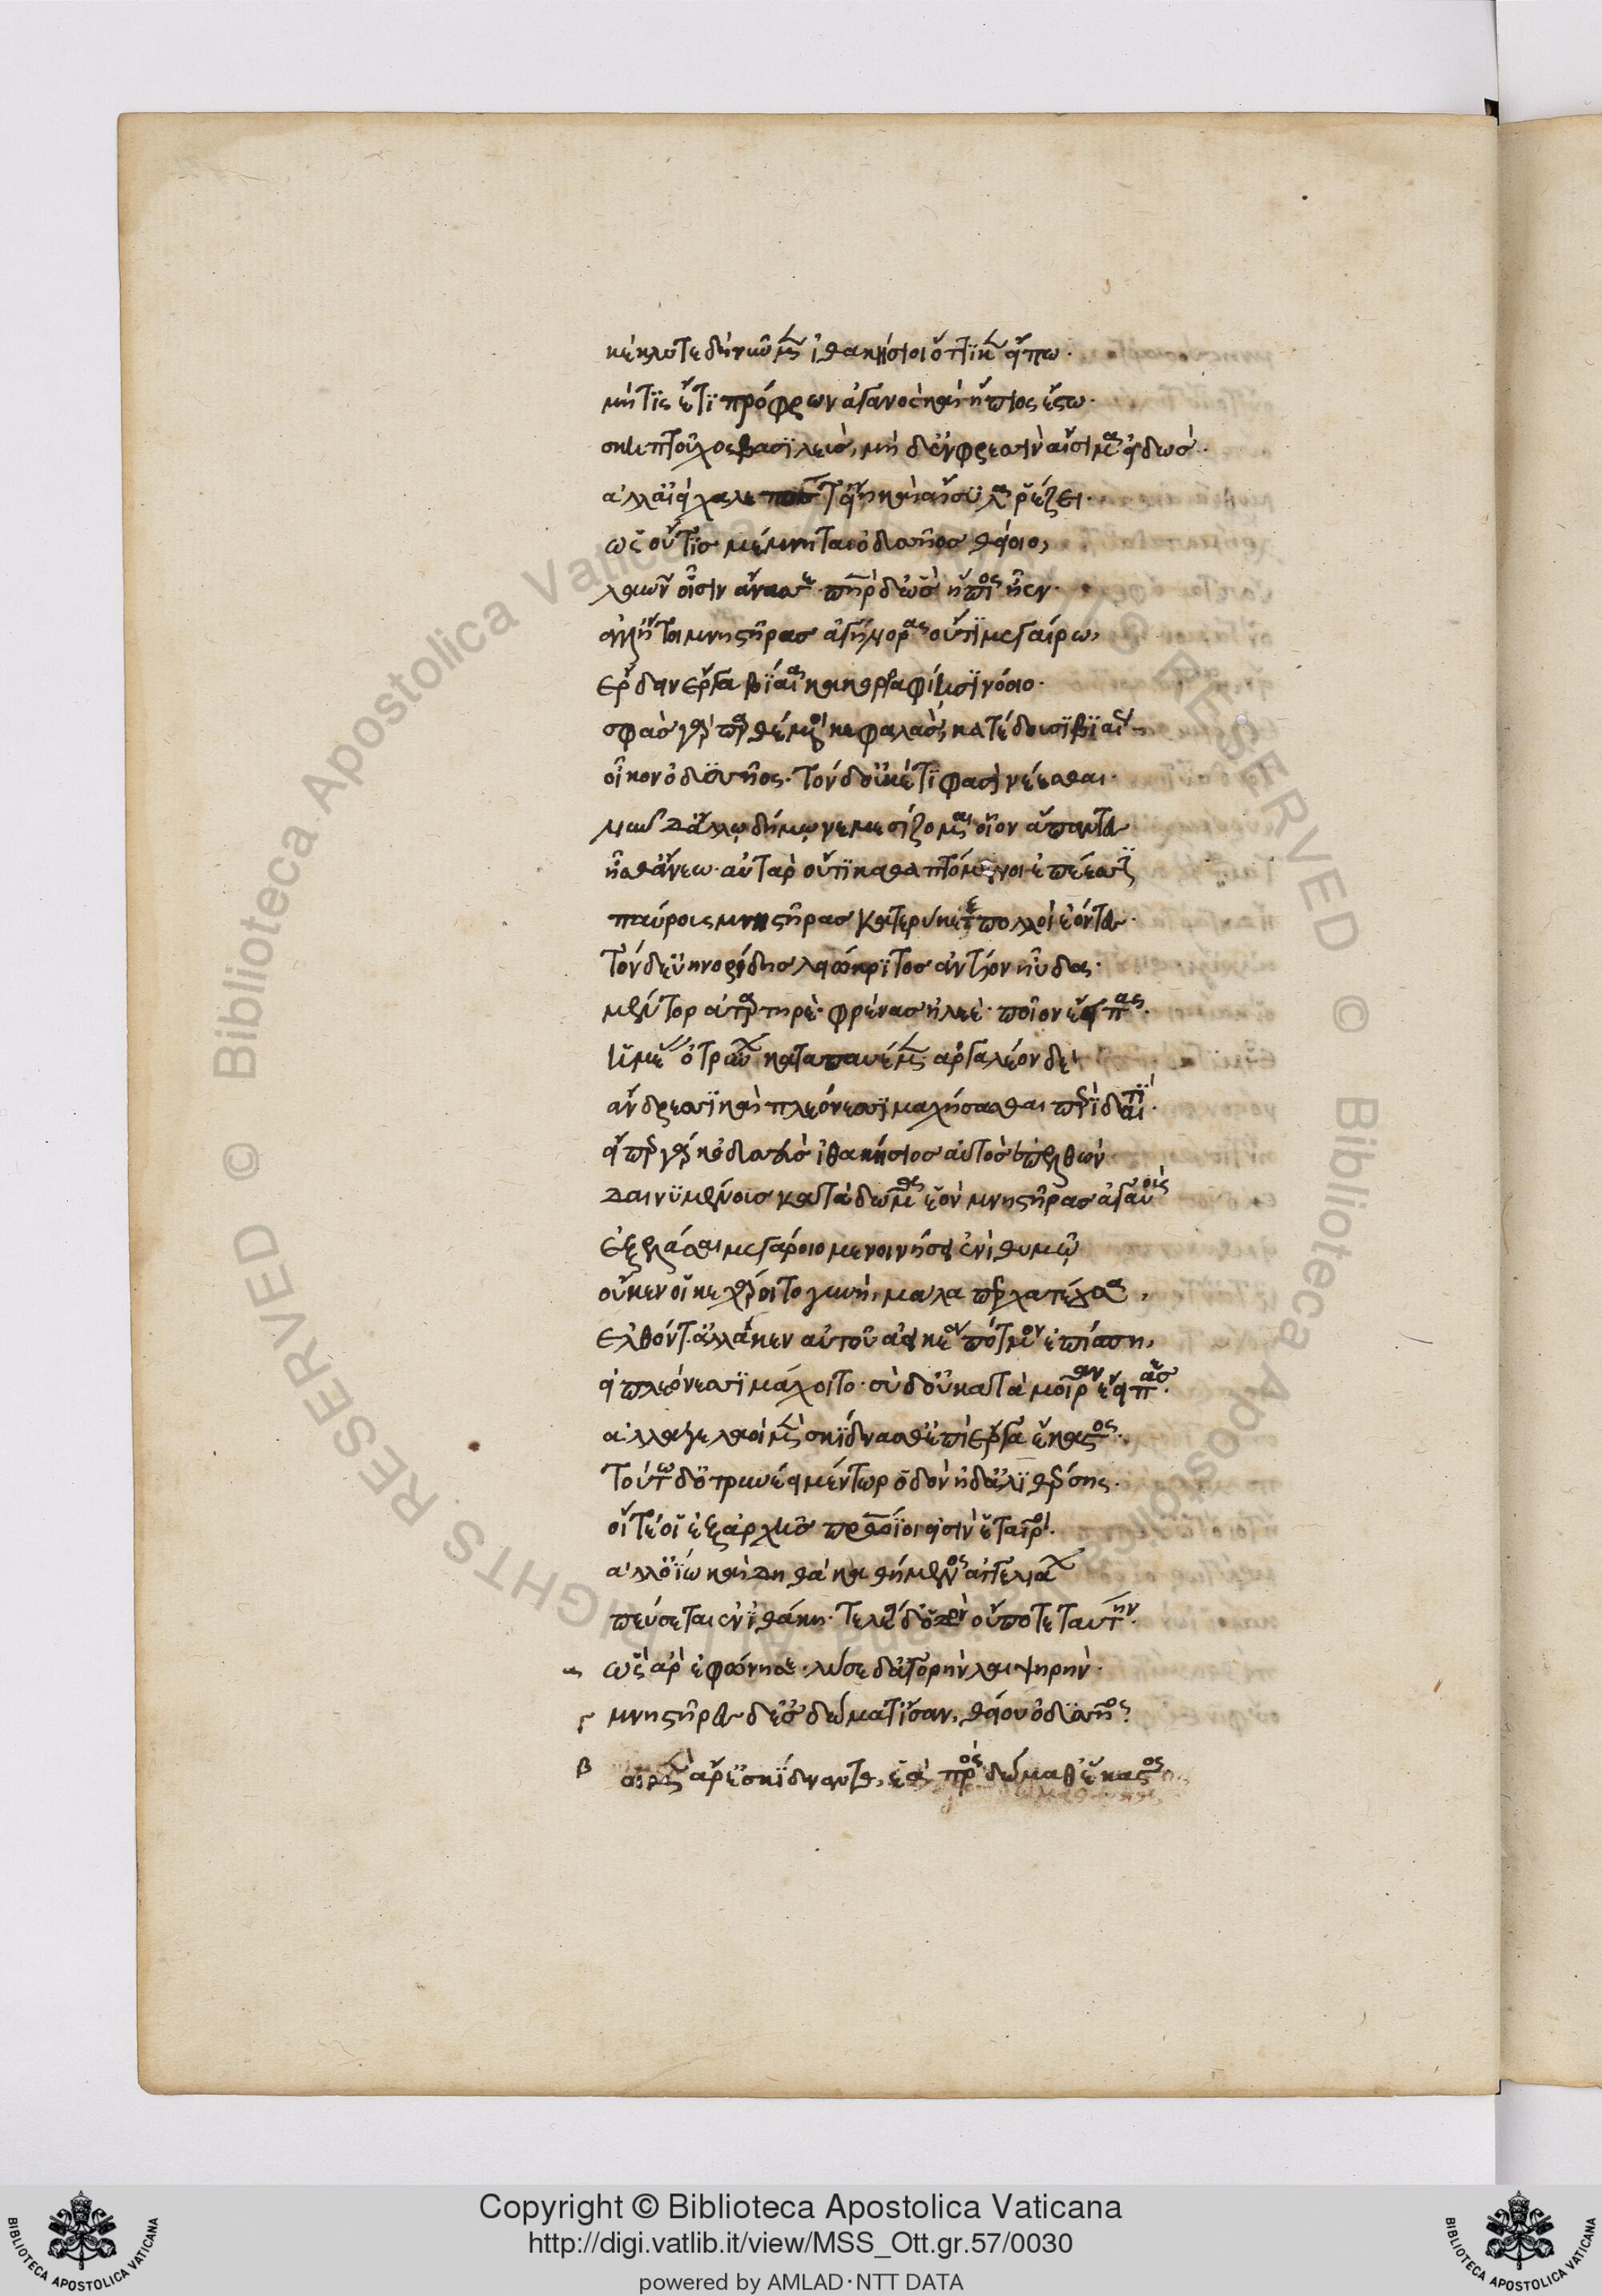 κέκλυτε δὴ νῦν μευ ἰθακήσιοι ὅττι κεν εἴπω·
μή τις ἔτι πρόφρων ἀγανὸς καὶ ἤπιος ἔστω·
σκηπτοῦχος βασιλεὺς, μὴ δὲ φρεσὶν αἴσιμα εἰδώς·
ἀλλ' αἰεὶ χαλεπός τ' εἴη καὶ αἴσυλα ῥέζει·
ὡς οὔτις μέμνηται ὀδυσσῆος θείοιο,
λαῶν οἷσιν ἄνασσε· πατὴρ δ' ὣς ἤπιος ἦεν·
ἀλλ' ἤτοι μνηστῆρας ἀγήνορας οὔτι μεγαίρω,
ἔρδειν ἔργα βίαια κακορραφίῃσι νόοιο·
σφὰς γὰρ παρθέμενοι κεφαλὰς, κατέδουσι βιαίως
οἶκον ὀδυσσῆος· τὸν δ' οὐκέτι φασὶ νέεσθαι·
νῦν δ' ἄλλῳ δήμῳ νεμεσίζομαι οἷον ἅπαντες
ἧσθ' ἄνεω· ἀτὰρ οὔτι καθαπτόμενοι ἐπέεσσι
παύρους μνηστῆρας κατερύκετε πολλοὶ ἐόντες·
τὸν δ' εὐηνορίδης λειώκριτος ἀντίον ηὔδα·
μέντορ ἀταρτηρέ· φρένας ἠλεέ· ποῖον ἔειπας·
ἡμέας ὀτρύνων καταπαυέμεν· ἀργαλέον δὲ
ἀνδράσι καὶ πλεόνεσσι μαχήσασθαι περὶ δαιτί·
εἴπερ γάρ κ' ὀδυσσεὺς ἰθακήσιος αὐτὸς ἐπελθὼν
δαινυμένους κατὰ δῶμα ἑὸν μνηστῆρας ἀγαυοὺς
ἐξελάσαι μεγάροιο μενοινήσει ἐνὶ θυμῷ
οὔ κέν οἱ κεχάροιτο γυνὴ, μάλα περ χατέουσα,
ἐλθόντ'· ἀλλά κεν αὐτοῦ ἀεικέα πότμον ἐπίσπῃ,
εἰ πλεόνεσσι μάχοιτο· σὺ δ' οὐ κατὰ μοῖραν ἔειπας·
ἀλλ' ἄγε λαοὶ μὲν σκίδνασθ' ἐπὶ ἔργα ἕκαστος·
τούτῳ δ' ὀτρυνέει μέντωρ ὁδὸν ἠδ' ἁλιθέρσης·
οἵ τέ οἱ ἐξ ἀρχῆς πατρώϊοι εἰσὶν ἑταῖροι·
ἀλλ' ὀΐω καὶ δηθὰ καθήμενος ἀγγελιάων
πεύσεται εἰν ἰθάκῃ· τελέει δ' ὁδὸν οὔποτε ταύτην·
ὡς ἄρ' ἐφώνησε· λῦσε δ' ἀγορὴν λαιψηρήν·
γ μνηστῆρες δ' ἐς δώματ' ἴσαν, θείου ὀδυσσῆος·
β οἱ μὲν ἄρ' ἐσκίδναντο, ἑὰ πρὸς δώμαθ' ἕκαστος
Copyright © Biblioteca Apostolica Vaticana
http://digi.vatlib.it/view/MSS_Ott.gr.57/0030
powered by AMLAD·NTT DATA